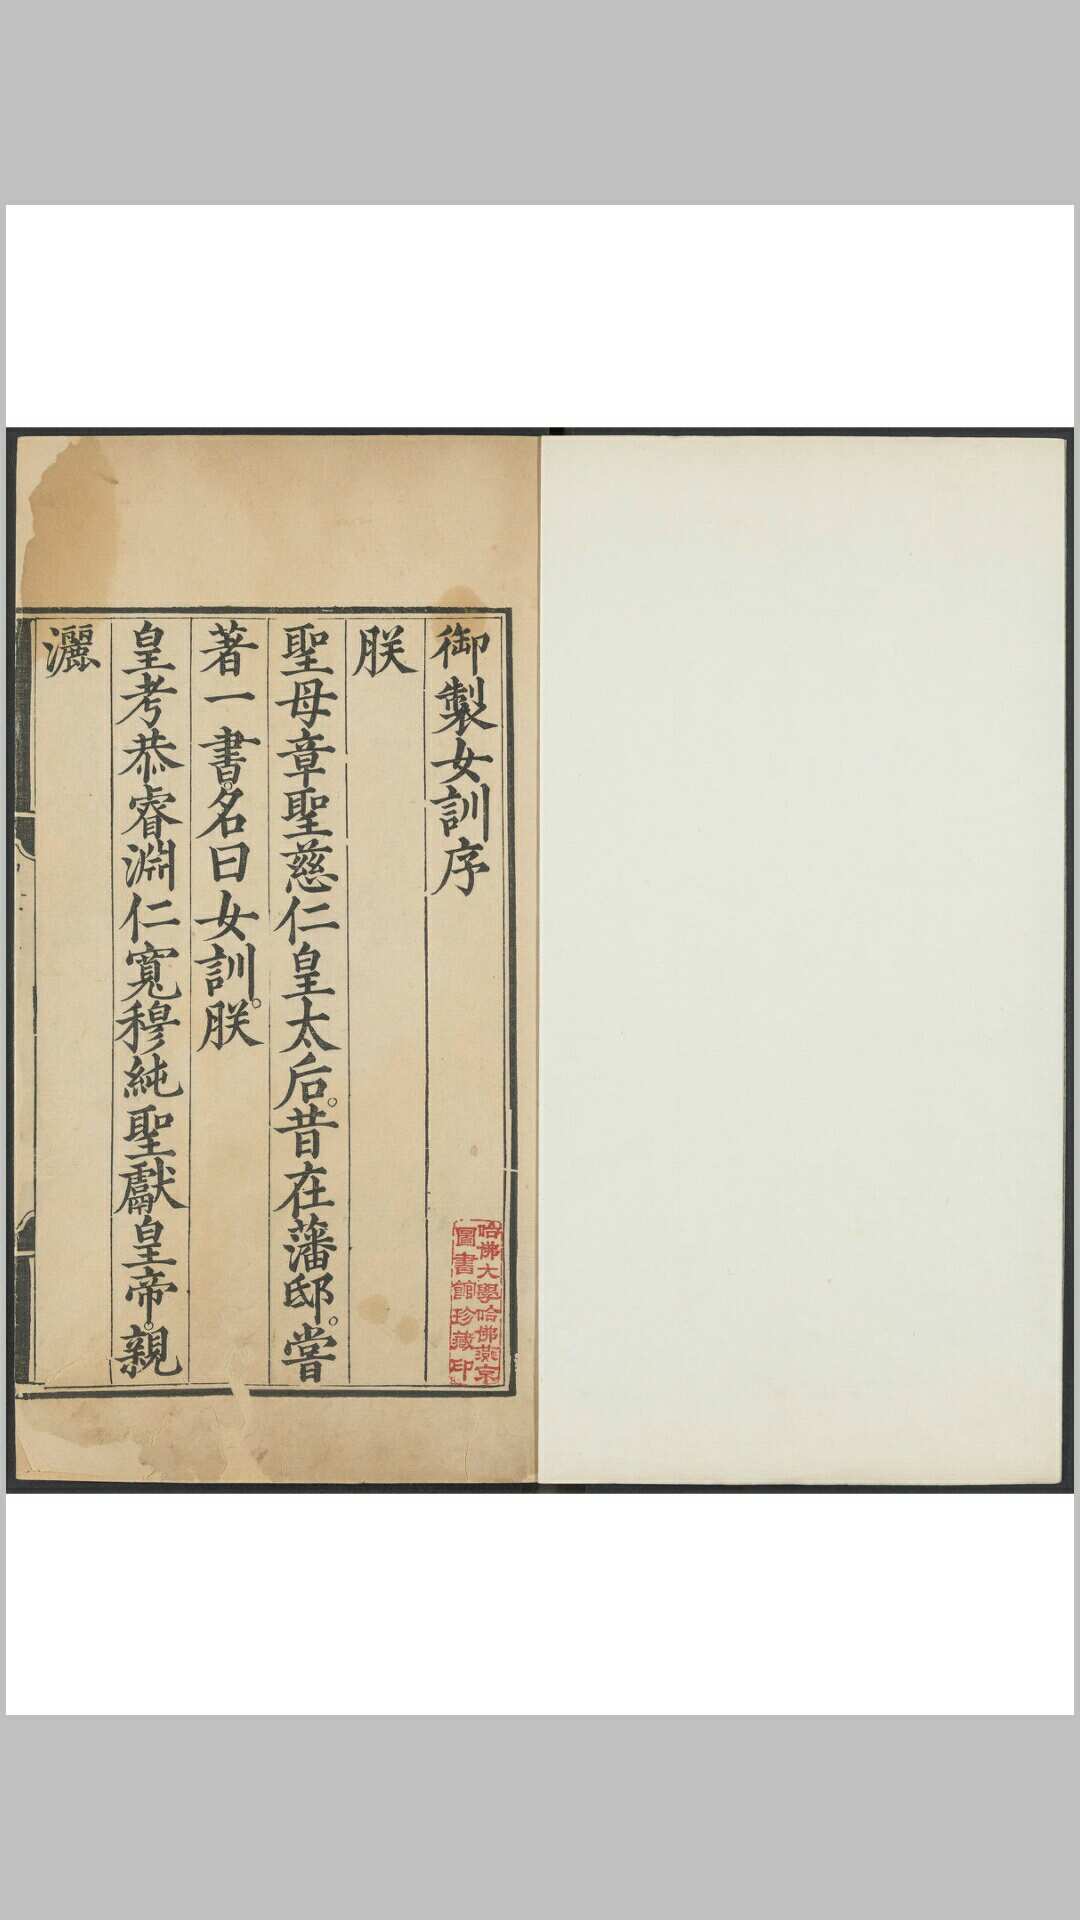 御製女訓序
朕
聖母章聖慈仁皇太后。昔在藩邸。嘗
著一書。名曰女訓。朕
皇考恭睿淵仁寬穆純聖獻皇帝。親
灑
哈佛大學哈佛燕京
圖書館珍藏印